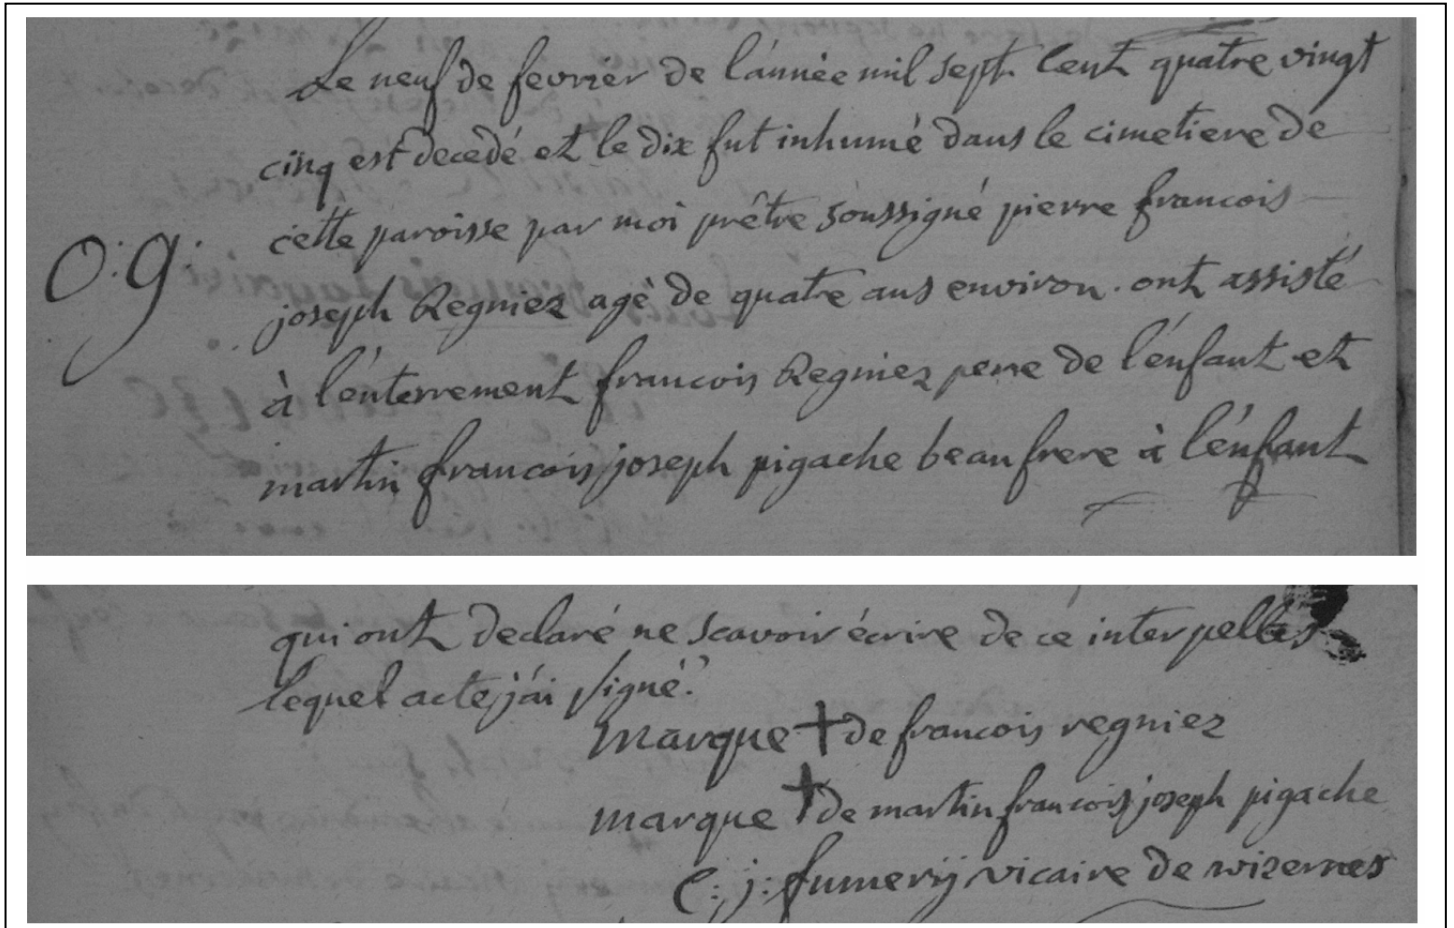 Le neuf de fevrier de l'année mil sept Cent quatre vingt
cinq est decedé et le dix fut inhumé dans le cimetiere de
cette paroisse par moi prêtre soussigné pierre francois
O:g:
joseph Regniez agé de quatre ans environ. ont assisté
à l'enterrement francois Regniez pere de l'enfant et
martin francois joseph pigache beau frere à l'enfant
qui ont declaré ne scavoir écrire de ce interpellés
lequel acte j'ai signé.
marque † de francois regniez
marque † de martin francois joseph pigache
C: j: fumerij vicaire de wizernes